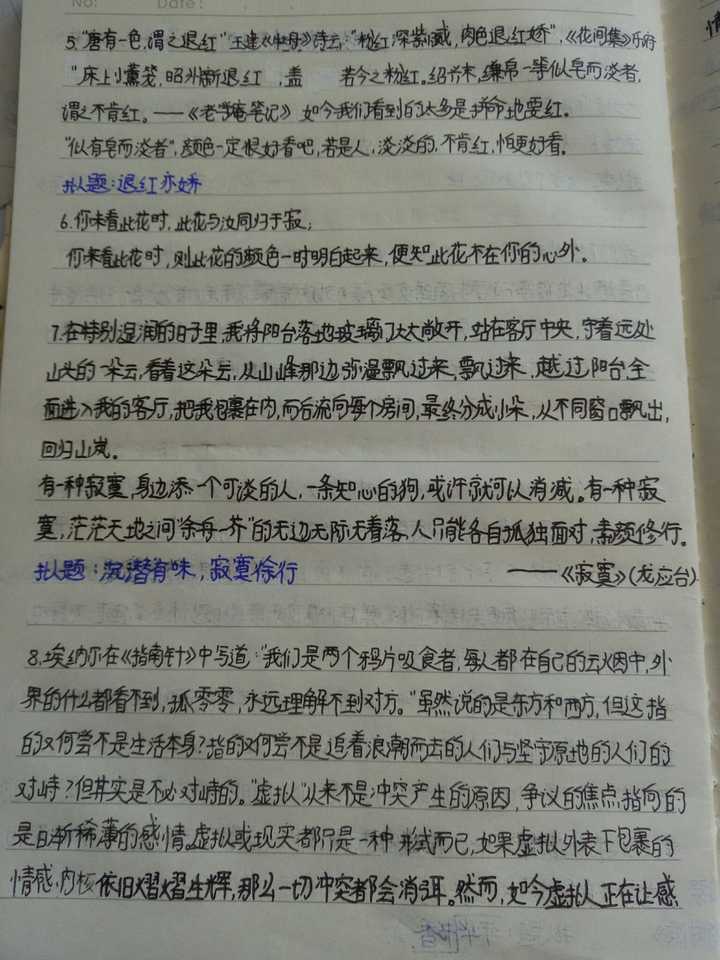 No:  Date:
5."唐有一色,谓之退红"王建《牡丹》诗云:"粉红深紫腻,肉色退红娇",《花间集》乐府
"床上小薰笼,昭州新退红",盖  若今之粉红。绍兴末,缣帛一等似皂而淡者,
谓之不肯红。——《老学庵笔记》 如今我们看到的太多是拼命地要红。
"似有皂而淡者",颜色一定很好看吧,若是人,淡淡的,不肯红,怕更好看。
拟题:退红亦娇
6.你未看此花时,此花与汝同归于寂;
你来看此花时,则此花的颜色一时明白起来,便知此花不在你的心外。
7.在特别湿润的日子里,我将阳台落地玻璃门大大敞开,站在客厅中央,守着远处
山头的一朵云,看着这朵云,从山峰那边弥漫飘过来,飘过来,越过阳台全
面进入我的客厅,把我包裹在内,而后流向每个房间,最终分成小朵,从不同窗口飘出,
回归山岚。
有一种寂寞,身边添一个可谈的人,一条知心的狗,或许就可以消减。有一种寂
寞,茫茫天地之间"余舟一芥"的无边无际无着落,人只能各自孤独面对,素颜修行。
拟题:沉潜有味,寂寞徐行 ——《寂寞》(龙应台)
8.埃纳尔在《指南针》中写道:"我们是两个鸦片吸食者,每人都在自己的云烟中,外
界的什么都看不到,孤零零,永远理解不到对方。"虽然说的是东方和西方,但这指
的又何尝不是生活本身?指的又何尝不是追着浪潮而去的人们与坚守原地的人们的
对峙?但其实是不必对峙的。"虚拟"从来不是冲突产生的原因,争议的焦点,指向的
是日渐稀薄的感情。虚拟或现实都只是一种形式而已,如果虚拟外表下包裹的
情感内核依旧熠熠生辉,那么一切冲突都会消弭。然而,如今虚拟人正在让感